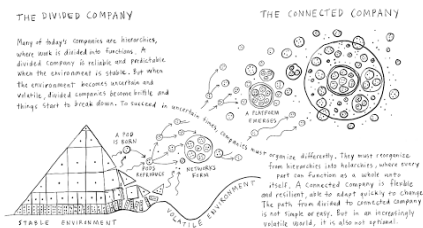 THE DIVIDED COMPANY
THE CONNECTED COMPANY
Many of today's companies are hierarchies,
where work is divided into functions. A
divided company is reliable and predictable
when the environment is stable. But when
the environment becomes uncertain and
volatile, divided companies become brittle and
things start to break down. To succeed in uncertain times, companies must
organize differently. They must reorganize
from hierarchies into holarchies, where every
part can function as a whole unto
itself. A connected company is flexible
and resilient, able to adapt quickly to change.
The path from divided to connected company
is not simple or easy. But in an increasingly
volatile world, it is also not optional.
A POD
IS BORN
PODS
EXPERIENCE
NETWORKS
FORM
A PLATFORM
EMERGES
STABLE ENVIRONMENT
VOLATILE ENVIRONMENT